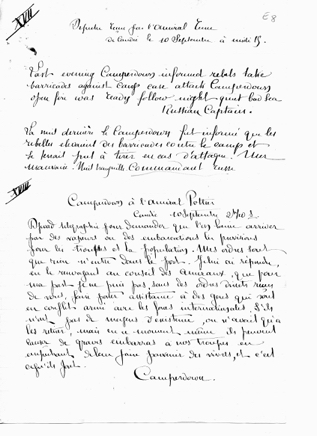 XVII
E8
Dépêche reçue par l'Amiral Russe
de Candie le 10 Septembre à midi 15.
Last evening Camperdown informed rebels take
barricades against camp case attack Camperdown
open fire was ready follow night quiet bad sea
Russian Captain.
La nuit dernière le Camperdown fut informé que les
rebelles élevaient des barricades contre le camp et
se tenait prêt à tirer en cas d'attaque. Mer
mauvaise. Nuit tranquille Commandant russe
XVIII
Camperdown à l'amiral Pottier
Candie 10 Septembre 2h40 S
télégraphié pour demander que l'on laisse arriver
par des vapeurs ou des embarcations les provisions
pour les troupes et la population. Mes ordres sont
que rien n'entre dans le port. J'ai répondu,
en le renvoyant au conseil des amiraux, que pour
ma part je ne puis pas, sans des ordres directs
de vous, faire porter assistance à des gens qui sont
en conflit armé avec les forces internationales. S'ils
n'ont pas de moyens d'existence, on n'aurait qu'à
les retirer, mais en ce moment même ils peuvent
causer de graves embarras à nos troupes en
empêchant de leur faire parvenir des vivres, et c'est
Camperdown.